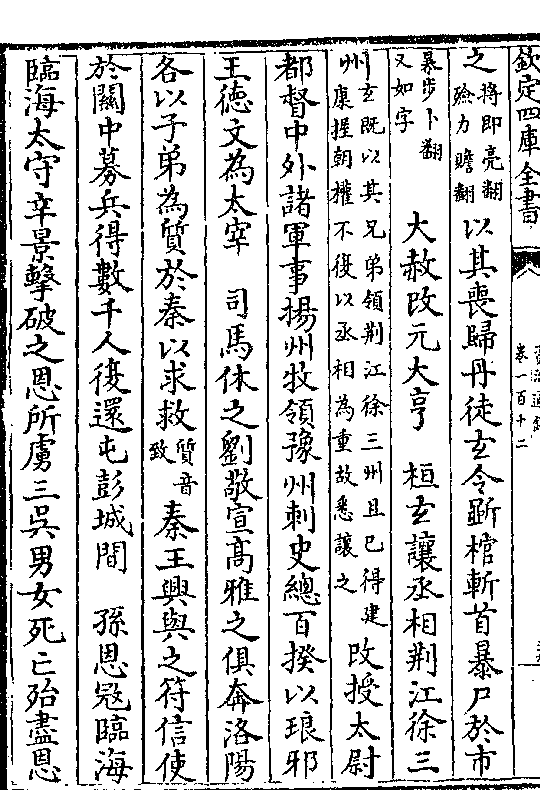 欽定四庫全書
資治通鑑
卷一百十二
之將即亮翻殮力贍翻以其喪歸丹徒𤣥令斲棺斬首暴尸於市
暴步卜翻又如字 大赦改元大亨 桓𤣥讓丞相荆江徐三
州𤣥既以其兄弟領荆江徐三州且已得建康握朝權不復以丞相為重故悉讓之改授太尉
都督中外諸軍事揚州牧領豫州刺史總百揆以琅邪
王德文為太宰 司馬休之劉敬宣髙雅之俱奔洛陽
各以子弟為質於秦以求救質音致秦王興與之符信使
於關中募兵得數千人復還屯彭城間 孫恩冦臨海
臨海太守辛景擊破之恩所虜三吳男女死亡殆盡恩